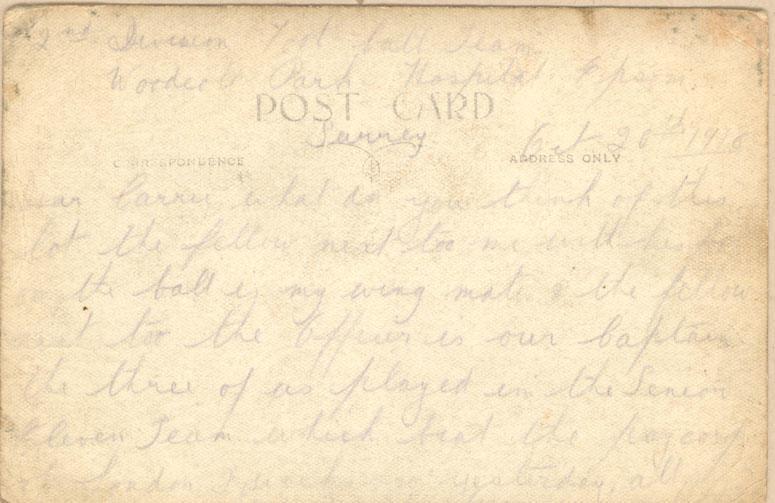 2nd Division Foot ball Team
Woodcote Park Hospital Epsom.
POST CARD
Surrey
Oct 20th 1916
CORRESPONDENCE
ADDRESS ONLY
Dear Carrie what do you think of this
lot the fellow next too me with his
on the ball is my wing mate & the fellow
next too the Officer is our Captain
the three of us played in the Senior
Eleven Team which beat the paycorp
London yesterday, all